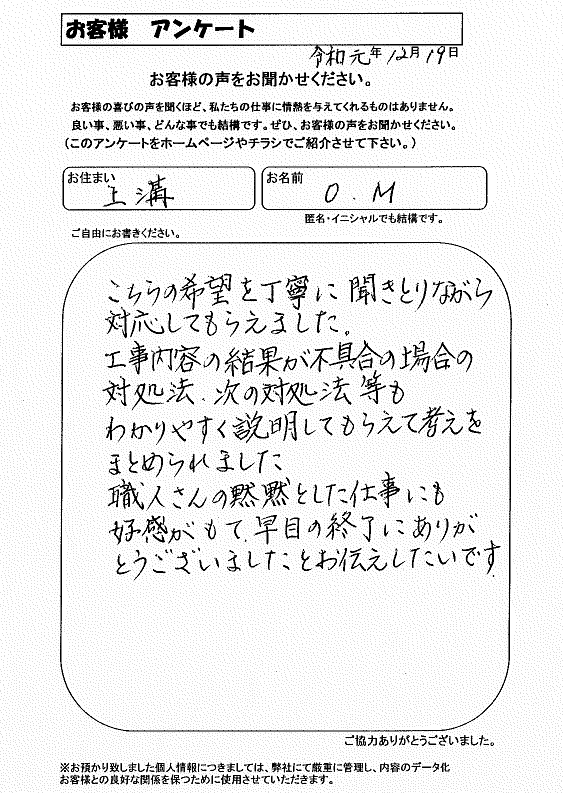 お客様 アンケート
令和元年12月19日
お客様の声をお聞かせください。
お客様の喜びの声を聞くほど、私たちの仕事に情熱を与えてくれるものはありません。
良い事、悪い事、どんな事でも結構です。ぜひ、お客様の声をお聞かせください。
(このアンケートをホームページやチラシでご紹介させて下さい。)
お住まい 上溝
お名前 O.M
匿名・イニシャルでも結構です。
ご自由にお書きください。
こちらの希望を丁寧に聞きとりながら
対応してもらえました。
工事内容の結果が不具合の場合の
対処法、次の対処法等も
わかりやすく説明してもらえて考えを
まとめられました
職人さんの黙黙とした仕事にも
好感がもて、早目の終了にありが
とうございましたとお伝えしたいです
ご協力ありがとうございました。
※お預かり致しました個人情報につきましては、弊社にて厳重に管理し、内容のデータ化
お客様との良好な関係を保つために使用させていただきます。